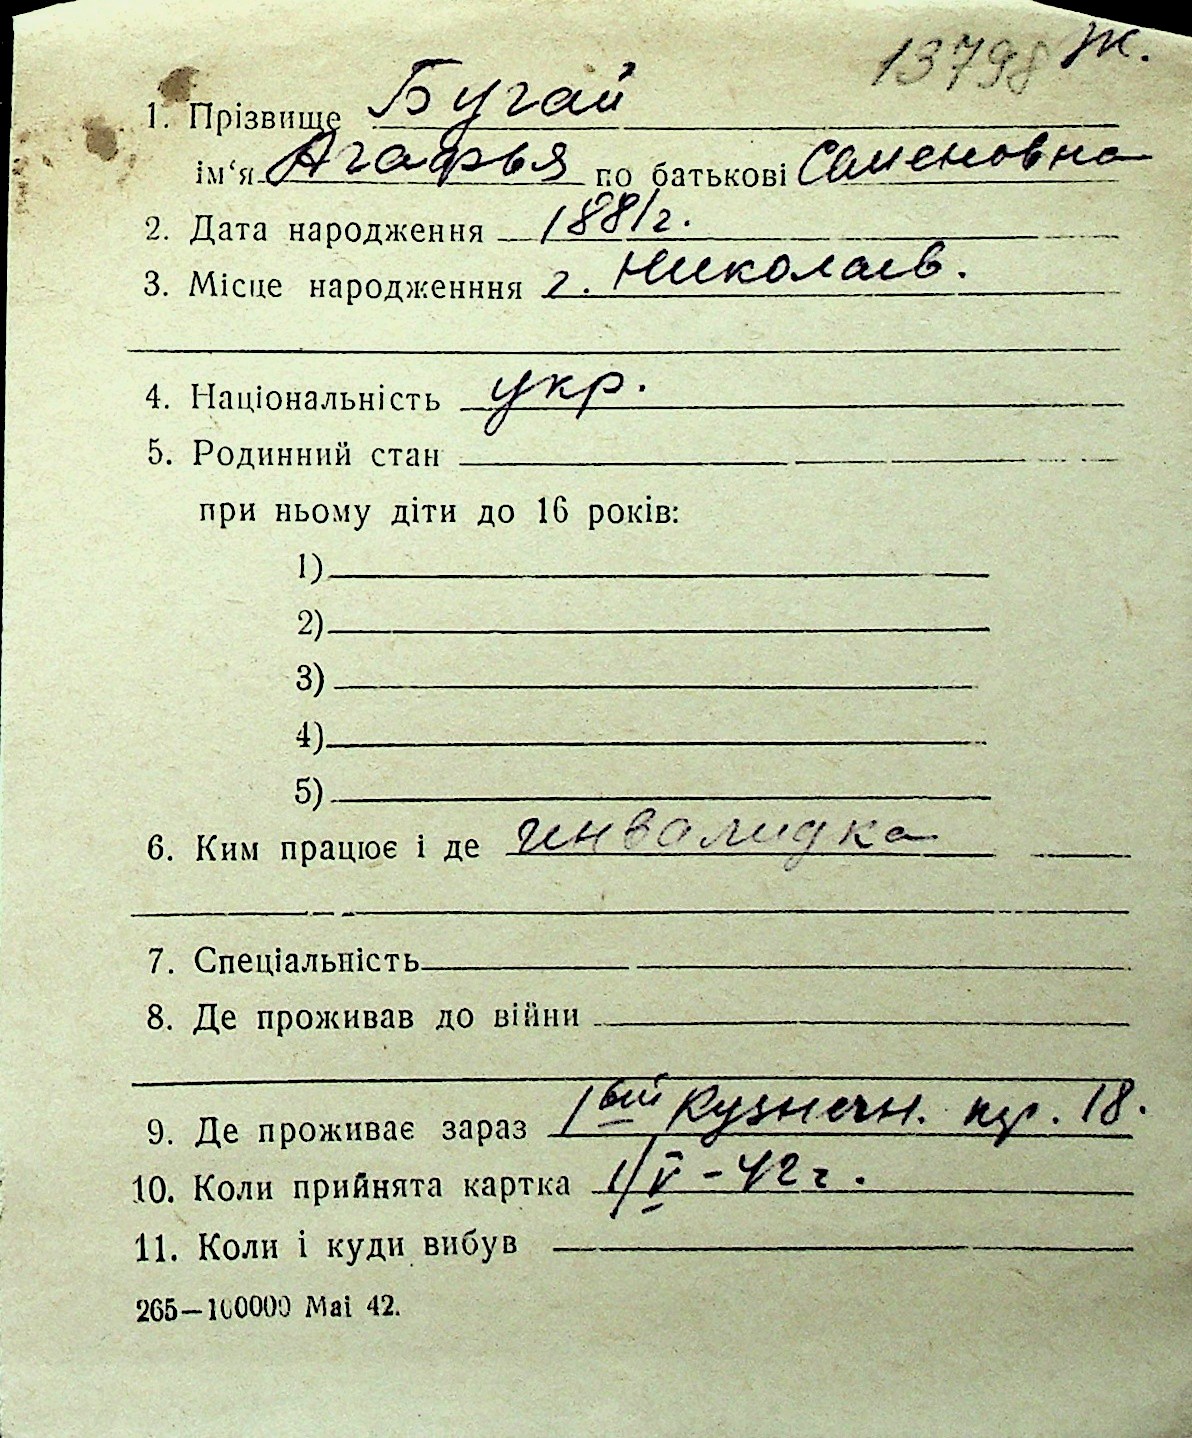 13798 Ж.
1. Прізвище Бугай
ім‘я Агафья по батькові Семеновна
2. Дата народження 1881 г.
3. Місце народженння г. Николаев.
4. Національність укр.
5. Родинний стан
при ньому діти до 16 років:
1)
2)
3)
4)
5)
6. Ким працює і де инвалидка
7. Спеціальність
8. Де проживав до війни
9. Де проживає зараз 1ый Кузнечн. пр. 18.
10. Коли прийнята картка 1/V - 42 г.
11. Коли і куди вибув
265—100000 Mai 42.